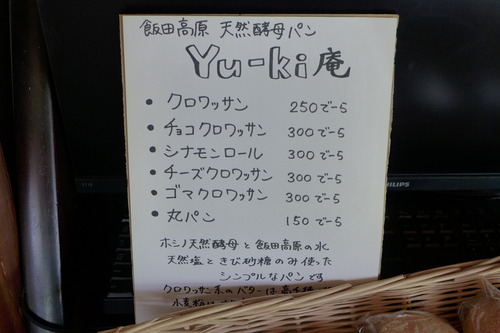 飯田高原 天然酵母パン
Yu-ki庵
• クロワッサン 250でーら
• チョコクロワッサン 300でーら
• シナモンロール 300でーら
• チーズクロワッサン 300でーら
• ゴマクロワッサン 300でーら
• 丸パン 150でーら
ホシノ天然酵母と飯田高原の水
天然塩ときび砂糖のみ使った
シンプルなパンです
クロワッサン系のバターは高千穂
小麦粉は
PHILIPS